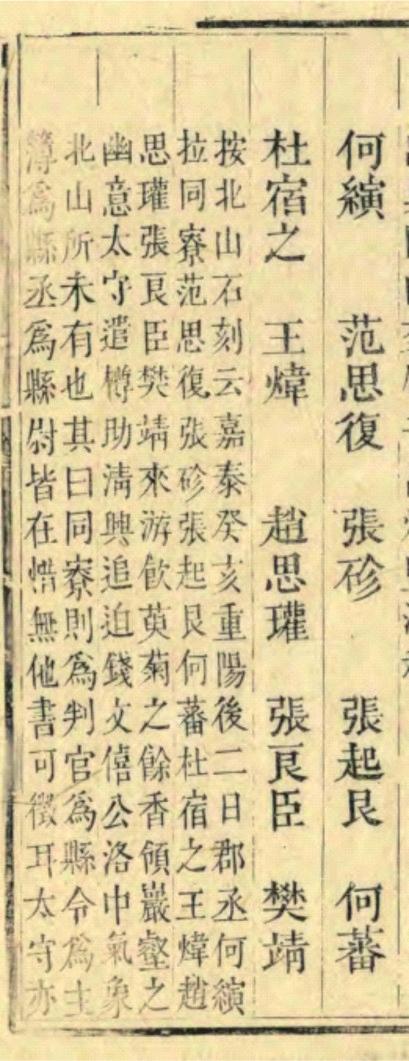 何縯 范思復 張䂦 張起艮 何蕃
杜宿之 王煒 趙思瓘 張良臣 樊靖
按北山石刻云嘉泰癸亥重陽後二日郡丞何縯
拉同寮范思復張䂦張起艮何蕃杜宿之王煒趙
思瓘張良臣樊靖來游飲萸菊之餘香領巖壑之
幽意太守遣樽助清興追迫錢文僖公洛中氣象
北山所未有也其曰同寮則爲判官爲縣令爲主
簿爲縣丞爲縣尉皆在惜無他書可徵耳太守亦